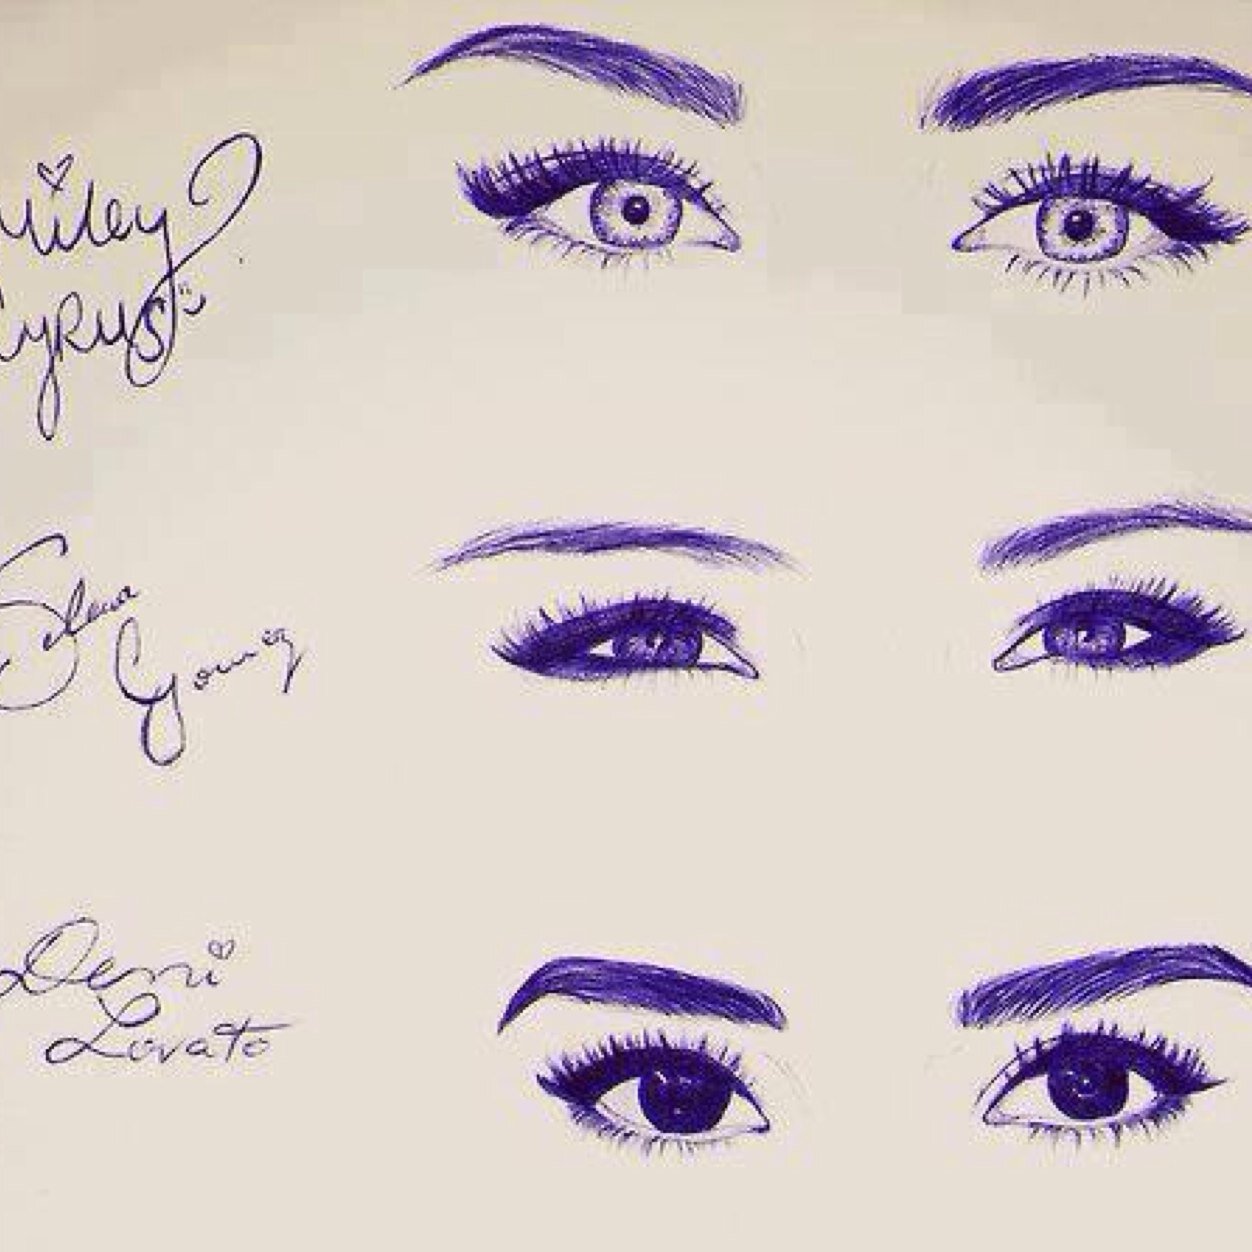 Miley
Cyrus
Selena
Gomez
Demi
Lovato